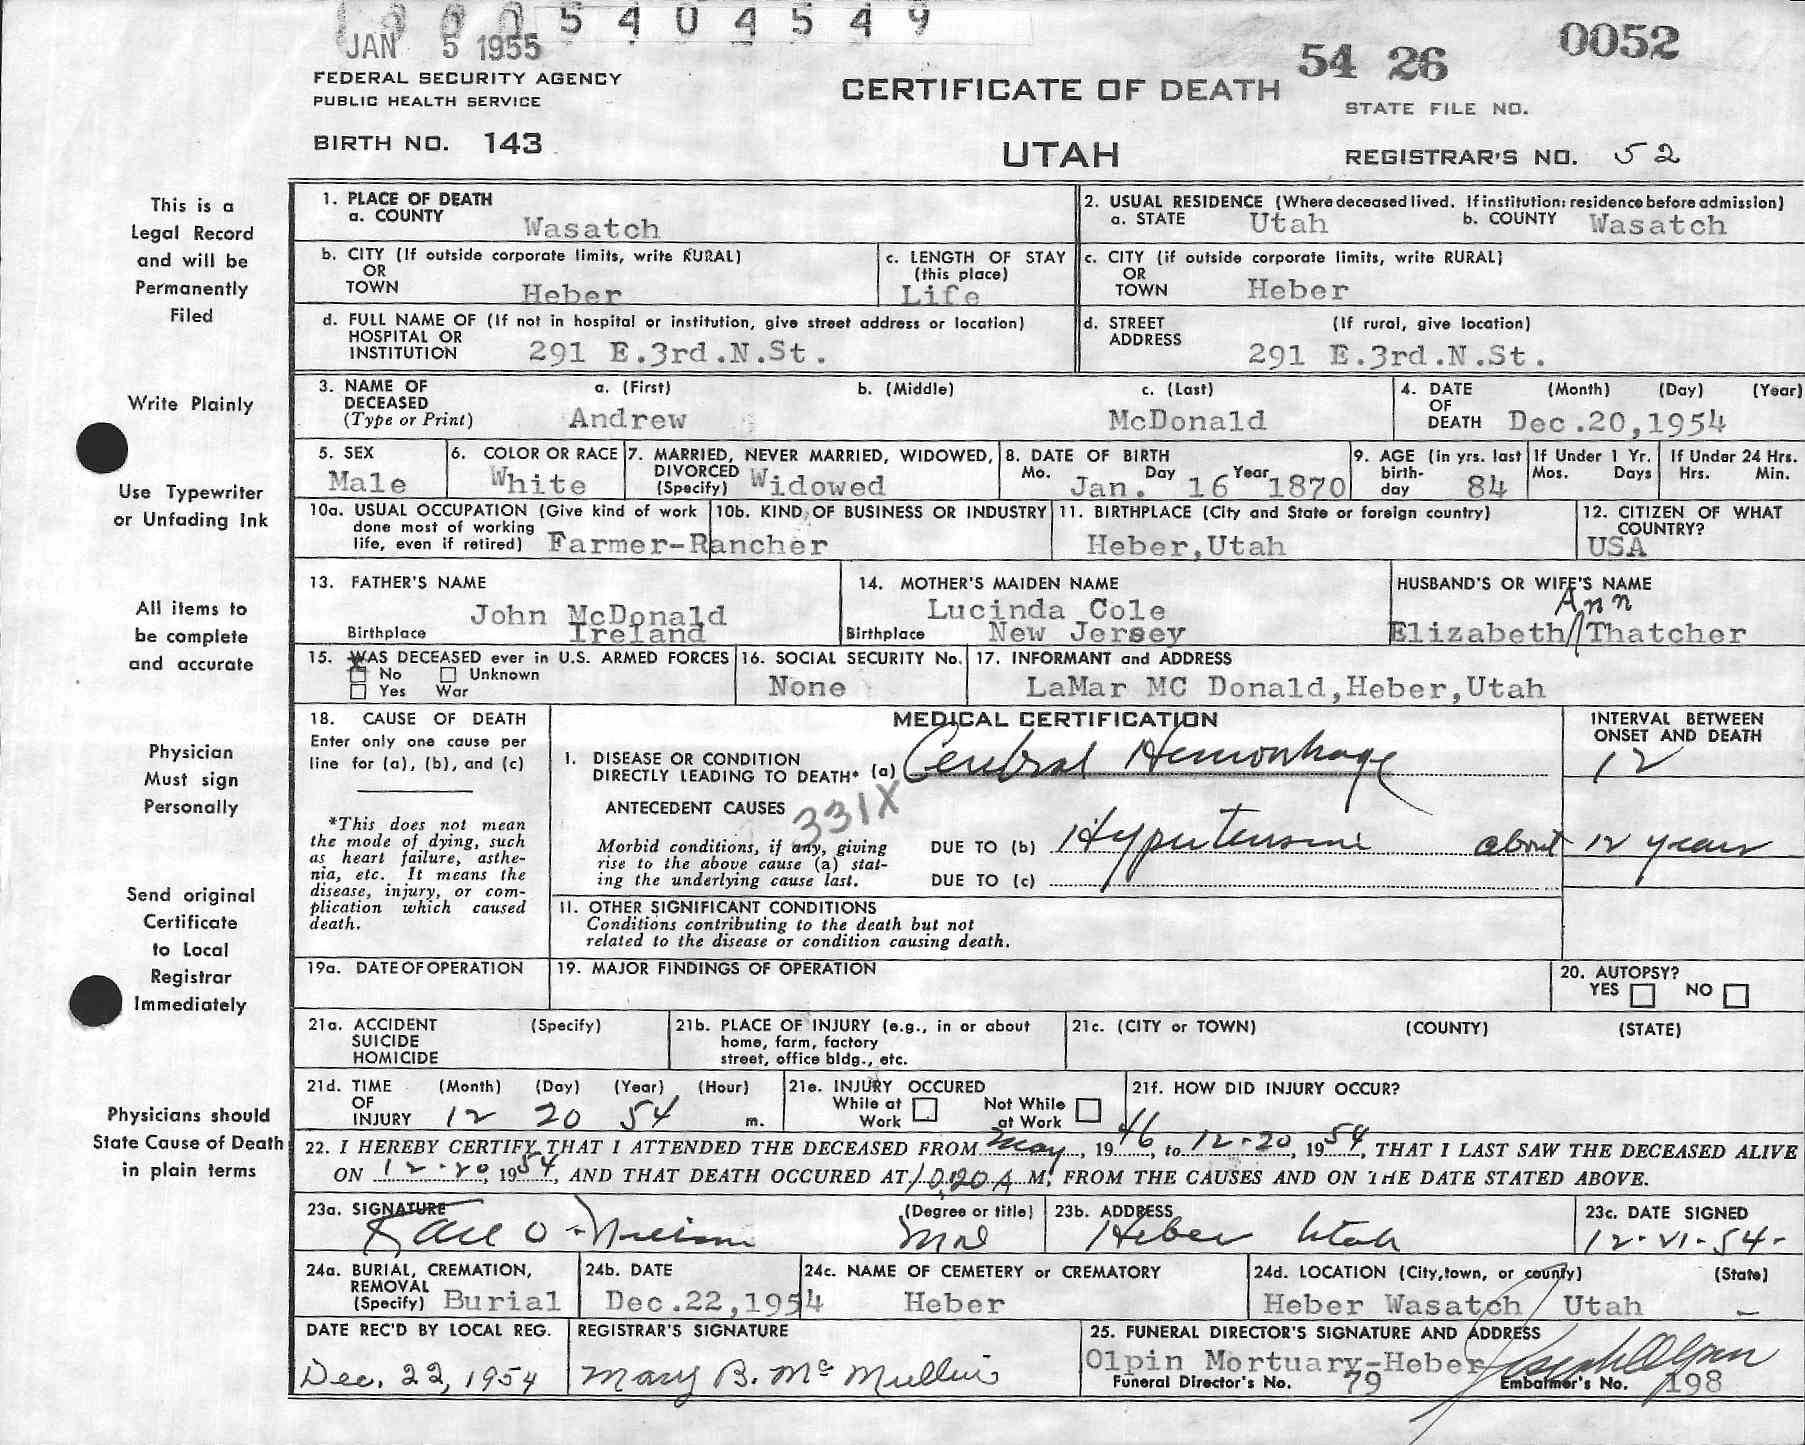 5404549
JAN 5 1955
54 26 0052
FEDERAL SECURITY AGENCY
PUBLIC HEALTH SERVICE
CERTIFICATE OF DEATH
STATE FILE NO.
BIRTH NO. 143
UTAH
REGISTRAR'S NO. 52
This is a
Legal Record
and will be
Permanently
Filed
Write Plainly
Use Typewriter
or Unfading Ink
All items to
be complete
and accurate
Physician
Must sign
Personally
Send original
Certificate
to Local
Registrar
Immediately
Physicians should
State Cause of Death
in plain terms
1. PLACE OF DEATH
a. COUNTY
Wasatch
2. USUAL RESIDENCE (Where deceased lived. If institution: residence before admission)
a. STATE Utah b. COUNTY Wasatch
b. CITY (If outside corporate limits, write RURAL)
OR
TOWN Heber
c. LENGTH OF STAY
(this place)
Life
c. CITY (if outside corporate limits, write RURAL)
OR
TOWN Heber
d. FULL NAME OF (If not in hospital or institution, give street address or location)
HOSPITAL OR
INSTITUTION 291 E.3rd.N.St.
d. STREET (If rural, give location)
ADDRESS
291 E.3rd.N.St.
3. NAME OF a. (First) b. (Middle) c. (Last)
DECEASED
(Type or Print) Andrew McDonald
4. DATE (Month) (Day) (Year)
OF
DEATH Dec.20,1954
5. SEX
Male
6. COLOR OR RACE
White
7. MARRIED, NEVER MARRIED, WIDOWED,
DIVORCED
(Specify) Widowed
8. DATE OF BIRTH
Mo. Day Year
Jan. 16 1870
9. AGE (in yrs. last
birth-
day 84
If Under 1 Yr.
Mos. Days
If Under 24 Hrs.
Hrs. Min.
10a. USUAL OCCUPATION (Give kind of work
done most of working
life, even if retired) Farmer-Rancher
10b. KIND OF BUSINESS OR INDUSTRY
11. BIRTHPLACE (City and State or foreign country)
Heber,Utah
12. CITIZEN OF WHAT
COUNTRY?
USA
13. FATHER'S NAME
John McDonald
Birthplace Ireland
14. MOTHER'S MAIDEN NAME
Lucinda Cole
Birthplace New Jersey
HUSBAND'S OR WIFE'S NAME
Ann
Elizabeth/Thatcher
15. WAS DECEASED ever in U.S. ARMED FORCES
No Unknown
Yes War
16. SOCIAL SECURITY No.
None
17. INFORMANT and ADDRESS
LaMar MC Donald,Heber,Utah
18. CAUSE OF DEATH
Enter only one cause per
line for (a), (b), and (c)
*This does not mean
the mode of dying, such
as heart failure, asthe-
nia, etc. It means the
disease, injury, or com-
plication which caused
death.
MEDICAL CERTIFICATION
INTERVAL BETWEEN
ONSET AND DEATH
I. DISEASE OR CONDITION
DIRECTLY LEADING TO DEATH* (a) Cerebral Hemorrhage 12
ANTECEDENT CAUSES 331X
Morbid conditions, if any, giving
rise to the above cause (a) stat-
ing the underlying cause last.
DUE TO (b) Hypertension about 12 years
DUE TO (c)
11. OTHER SIGNIFICANT CONDITIONS
Conditions contributing to the death but not
related to the disease or condition causing death.
19a. DATE OF OPERATION
19. MAJOR FINDINGS OF OPERATION
20. AUTOPSY?
YES NO
21a. ACCIDENT (Specify)
SUICIDE
HOMICIDE
21b. PLACE OF INJURY (e.g., in or about
home, farm, factory
street, office bldg., etc.
21c. (CITY or TOWN) (COUNTY) (STATE)
21d. TIME (Month) (Day) (Year) (Hour)
OF
INJURY 12 20 54 m.
21e. INJURY OCCURED
While at Not While
Work at Work
21f. HOW DID INJURY OCCUR?
22. I HEREBY CERTIFY THAT I ATTENDED THE DECEASED FROM May, 1946, to 12-20, 1954, THAT I LAST SAW THE DECEASED ALIVE
ON 12-20, 1954, AND THAT DEATH OCCURED AT 10:20 A M, FROM THE CAUSES AND ON THE DATE STATED ABOVE.
23a. SIGNATURE (Degree or title)
Karl O Nielson MD
23b. ADDRESS
Heber Utah
23c. DATE SIGNED
12-21-54-
24a. BURIAL, CREMATION,
REMOVAL
(Specify) Burial
24b. DATE
Dec.22,1954
24c. NAME OF CEMETERY or CREMATORY
Heber
24d. LOCATION (City,town, or county) (State)
Heber Wasatch Utah
DATE REC'D BY LOCAL REG.
Dec. 22, 1954
REGISTRAR'S SIGNATURE
Mary B. McMullin
25. FUNERAL DIRECTOR'S SIGNATURE AND ADDRESS
Olpin Mortuary-Heber Joseph Olpin
Funeral Director's No. 79 Embalmer's No. 198